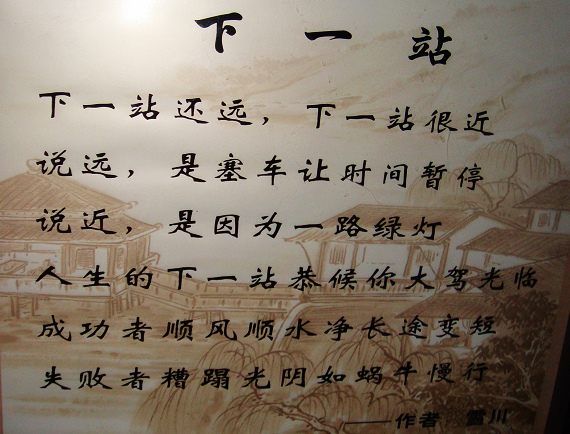 下一站
下一站还远，下一站很近
说远，是塞车让时间暂停
说近，是因为一路绿灯
人生的下一站恭候你大驾光临
成功者顺风顺水净长途变短
失败者糟蹋光阴如蜗牛慢行
——作者 雪川